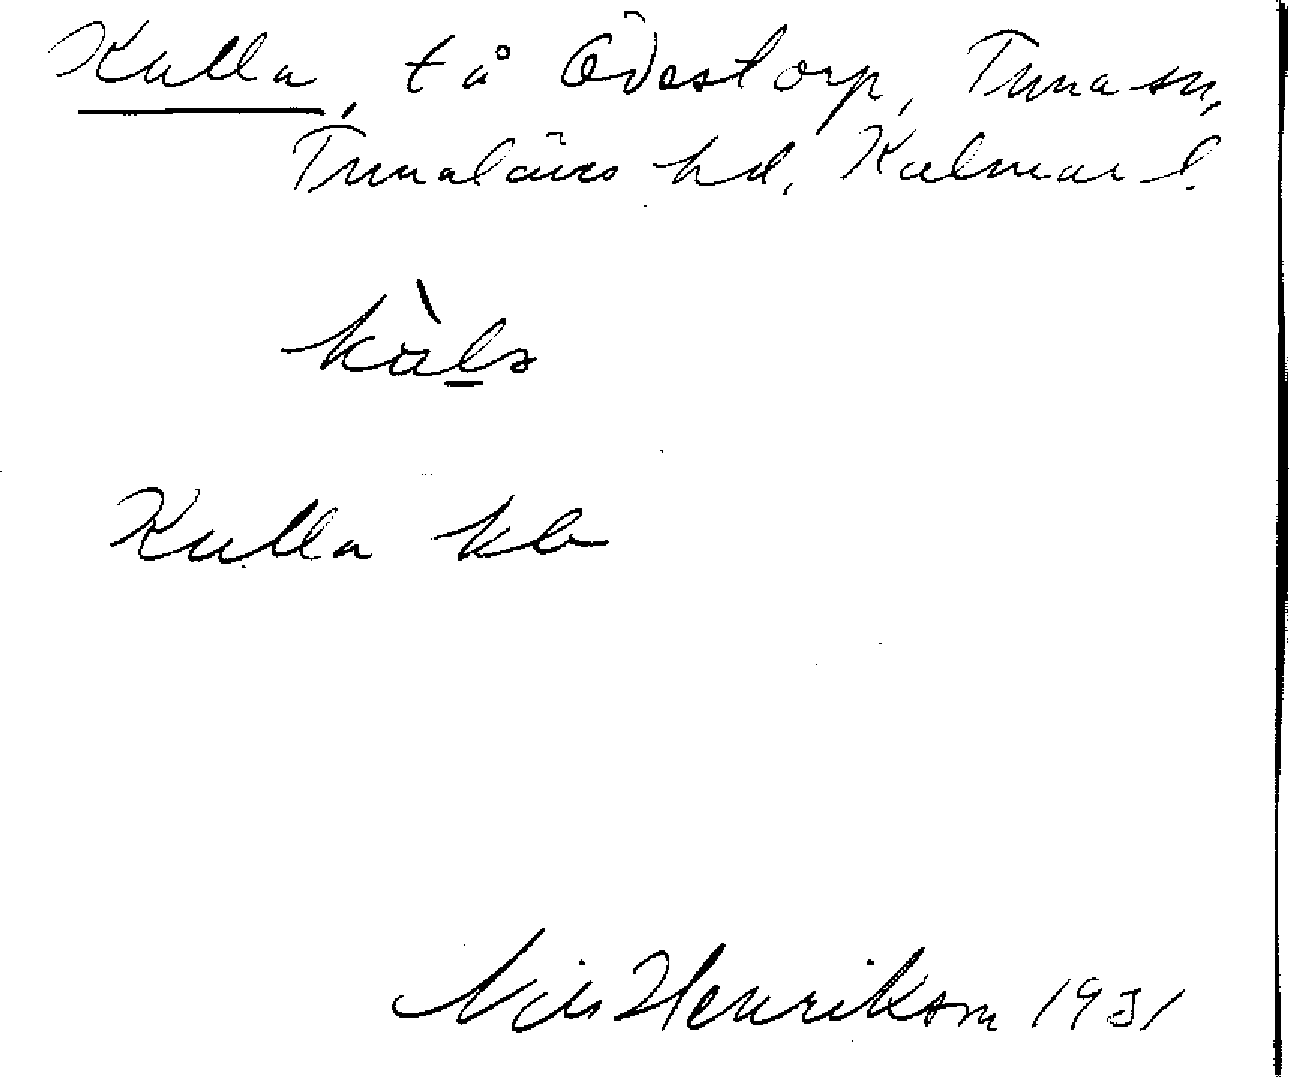 Kulla, t å Ödestorp, Tuna sn,
Tunaläns hd, Kalmar l.
kàlₔ
Kulla kb
Nils Henrikson 1931